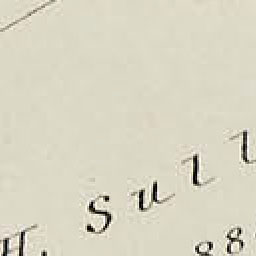 H. Sull
88